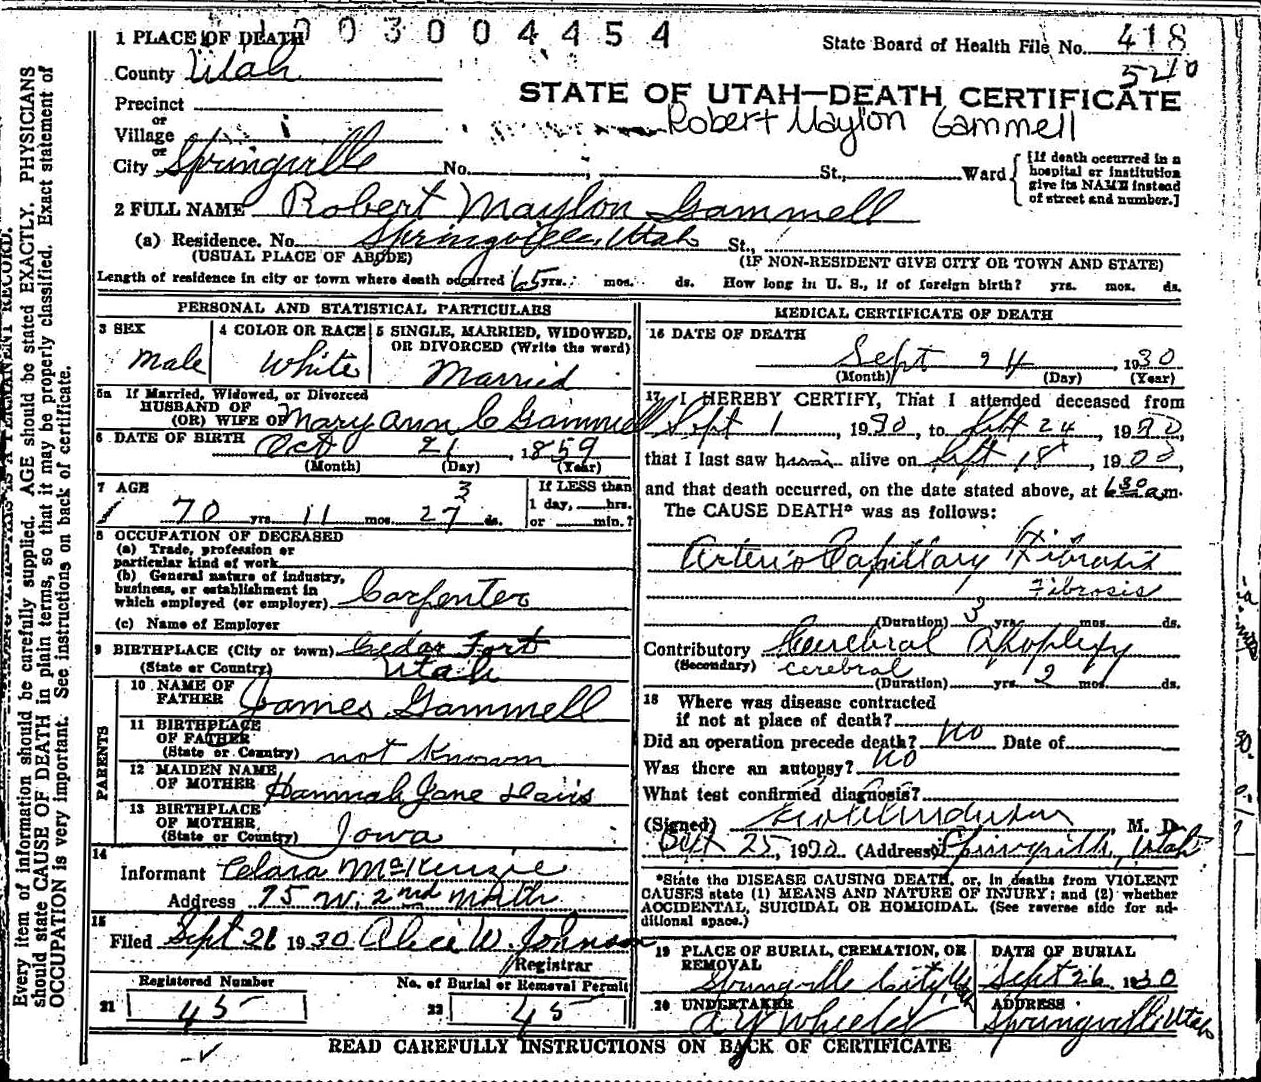 003004454
State Board of Health File No. 418
5210
1 PLACE OF DEATH
County Utah
STATE OF UTAH—DEATH CERTIFICATE
Robert Maylon Gammell
Precinct
or
Village
or
City Springville No. St., Ward
[If death occurred in a hospital or institution give its NAME instead of street and number.]
2 FULL NAME Robert Maylon Gammell
(a) Residence. No. Springville, Utah St.,
(USUAL PLACE OF ABODE) (IF NON-RESIDENT GIVE CITY OR TOWN AND STATE)
Length of residence in city or town where death occurred 65 yrs. mos. ds. How long in U. S., if of foreign birth? yrs. mos. ds.
PERSONAL AND STATISTICAL PARTICULARS
3 SEX
Male
4 COLOR OR RACE
White
5 SINGLE, MARRIED, WIDOWED, OR DIVORCED (Write the word)
Married
5a If Married, Widowed, or Divorced
HUSBAND OF
(OR) WIFE OF Mary Ann C Gammell
6 DATE OF BIRTH Oct 21, 1859
(Month) (Day) (Year)
7 AGE
70 yrs. 11 mos. 27 3 ds.
If LESS than
1 day, hrs.
or min.?
8 OCCUPATION OF DECEASED
(a) Trade, profession or
particular kind of work
(b) General nature of industry,
business, or establishment in
which employed (or employer) Carpenter
(c) Name of Employer
9 BIRTHPLACE (City or town) Cedar Fort
(State or Country) Utah
PARENTS
10 NAME OF
FATHER James Gammell
11 BIRTHPLACE
OF FATHER
(State or Country) not Known
12 MAIDEN NAME
OF MOTHER Hannah Jane Davis
13 BIRTHPLACE
OF MOTHER
(State or Country) Iowa
14
Informant Clara McKenzie
Address 75 W. 2nd North
15
Filed Sept 26 1930 Alice W. Johnson
Registrar
Registered Number
21 45
No. of Burial or Removal Permit
22 45
MEDICAL CERTIFICATE OF DEATH
16 DATE OF DEATH
Sept 24, 1930
(Month) (Day) (Year)
17 I HEREBY CERTIFY, That I attended deceased from
Sept 1, 1930, to Sept 24, 1930,
that I last saw him alive on Sept 18, 19
and that death occurred, on the date stated above, at 6 30 a.m.
The CAUSE DEATH* was as follows:
Arterio Capillary Fibrosis
Fibrosis
(Duration) 3 yrs. mos. ds.
Contributory Cerebral Apoplexy
(Secondary) cerebral
(Duration) yrs. 2 mos. ds.
18 Where was disease contracted
if not at place of death?
Did an operation precede death? No Date of
Was there an autopsy? No
What test confirmed diagnosis?
(Signed) M. D.
Sept 25, 1930 (Address) Springville, Utah
*State the DISEASE CAUSING DEATH, or, in deaths from VIOLENT
CAUSES state (1) MEANS AND NATURE OF INJURY; and (2) whether
ACCIDENTAL, SUICIDAL OR HOMICIDAL. (See reverse side for ad-
ditional space.)
19 PLACE OF BURIAL, CREMATION, OR
REMOVAL
Springville City, Utah
DATE OF BURIAL
Sept 26 1930
20 UNDERTAKER
A Y Wheeler
ADDRESS
Springville, Utah
READ CAREFULLY INSTRUCTIONS ON BACK OF CERTIFICATE
Every item of information should be carefully supplied. AGE should be stated EXACTLY. PHYSICIANS
should state CAUSE OF DEATH in plain terms, so that it may be properly classified. Exact statement of
OCCUPATION is very important. See instructions on back of certificate.